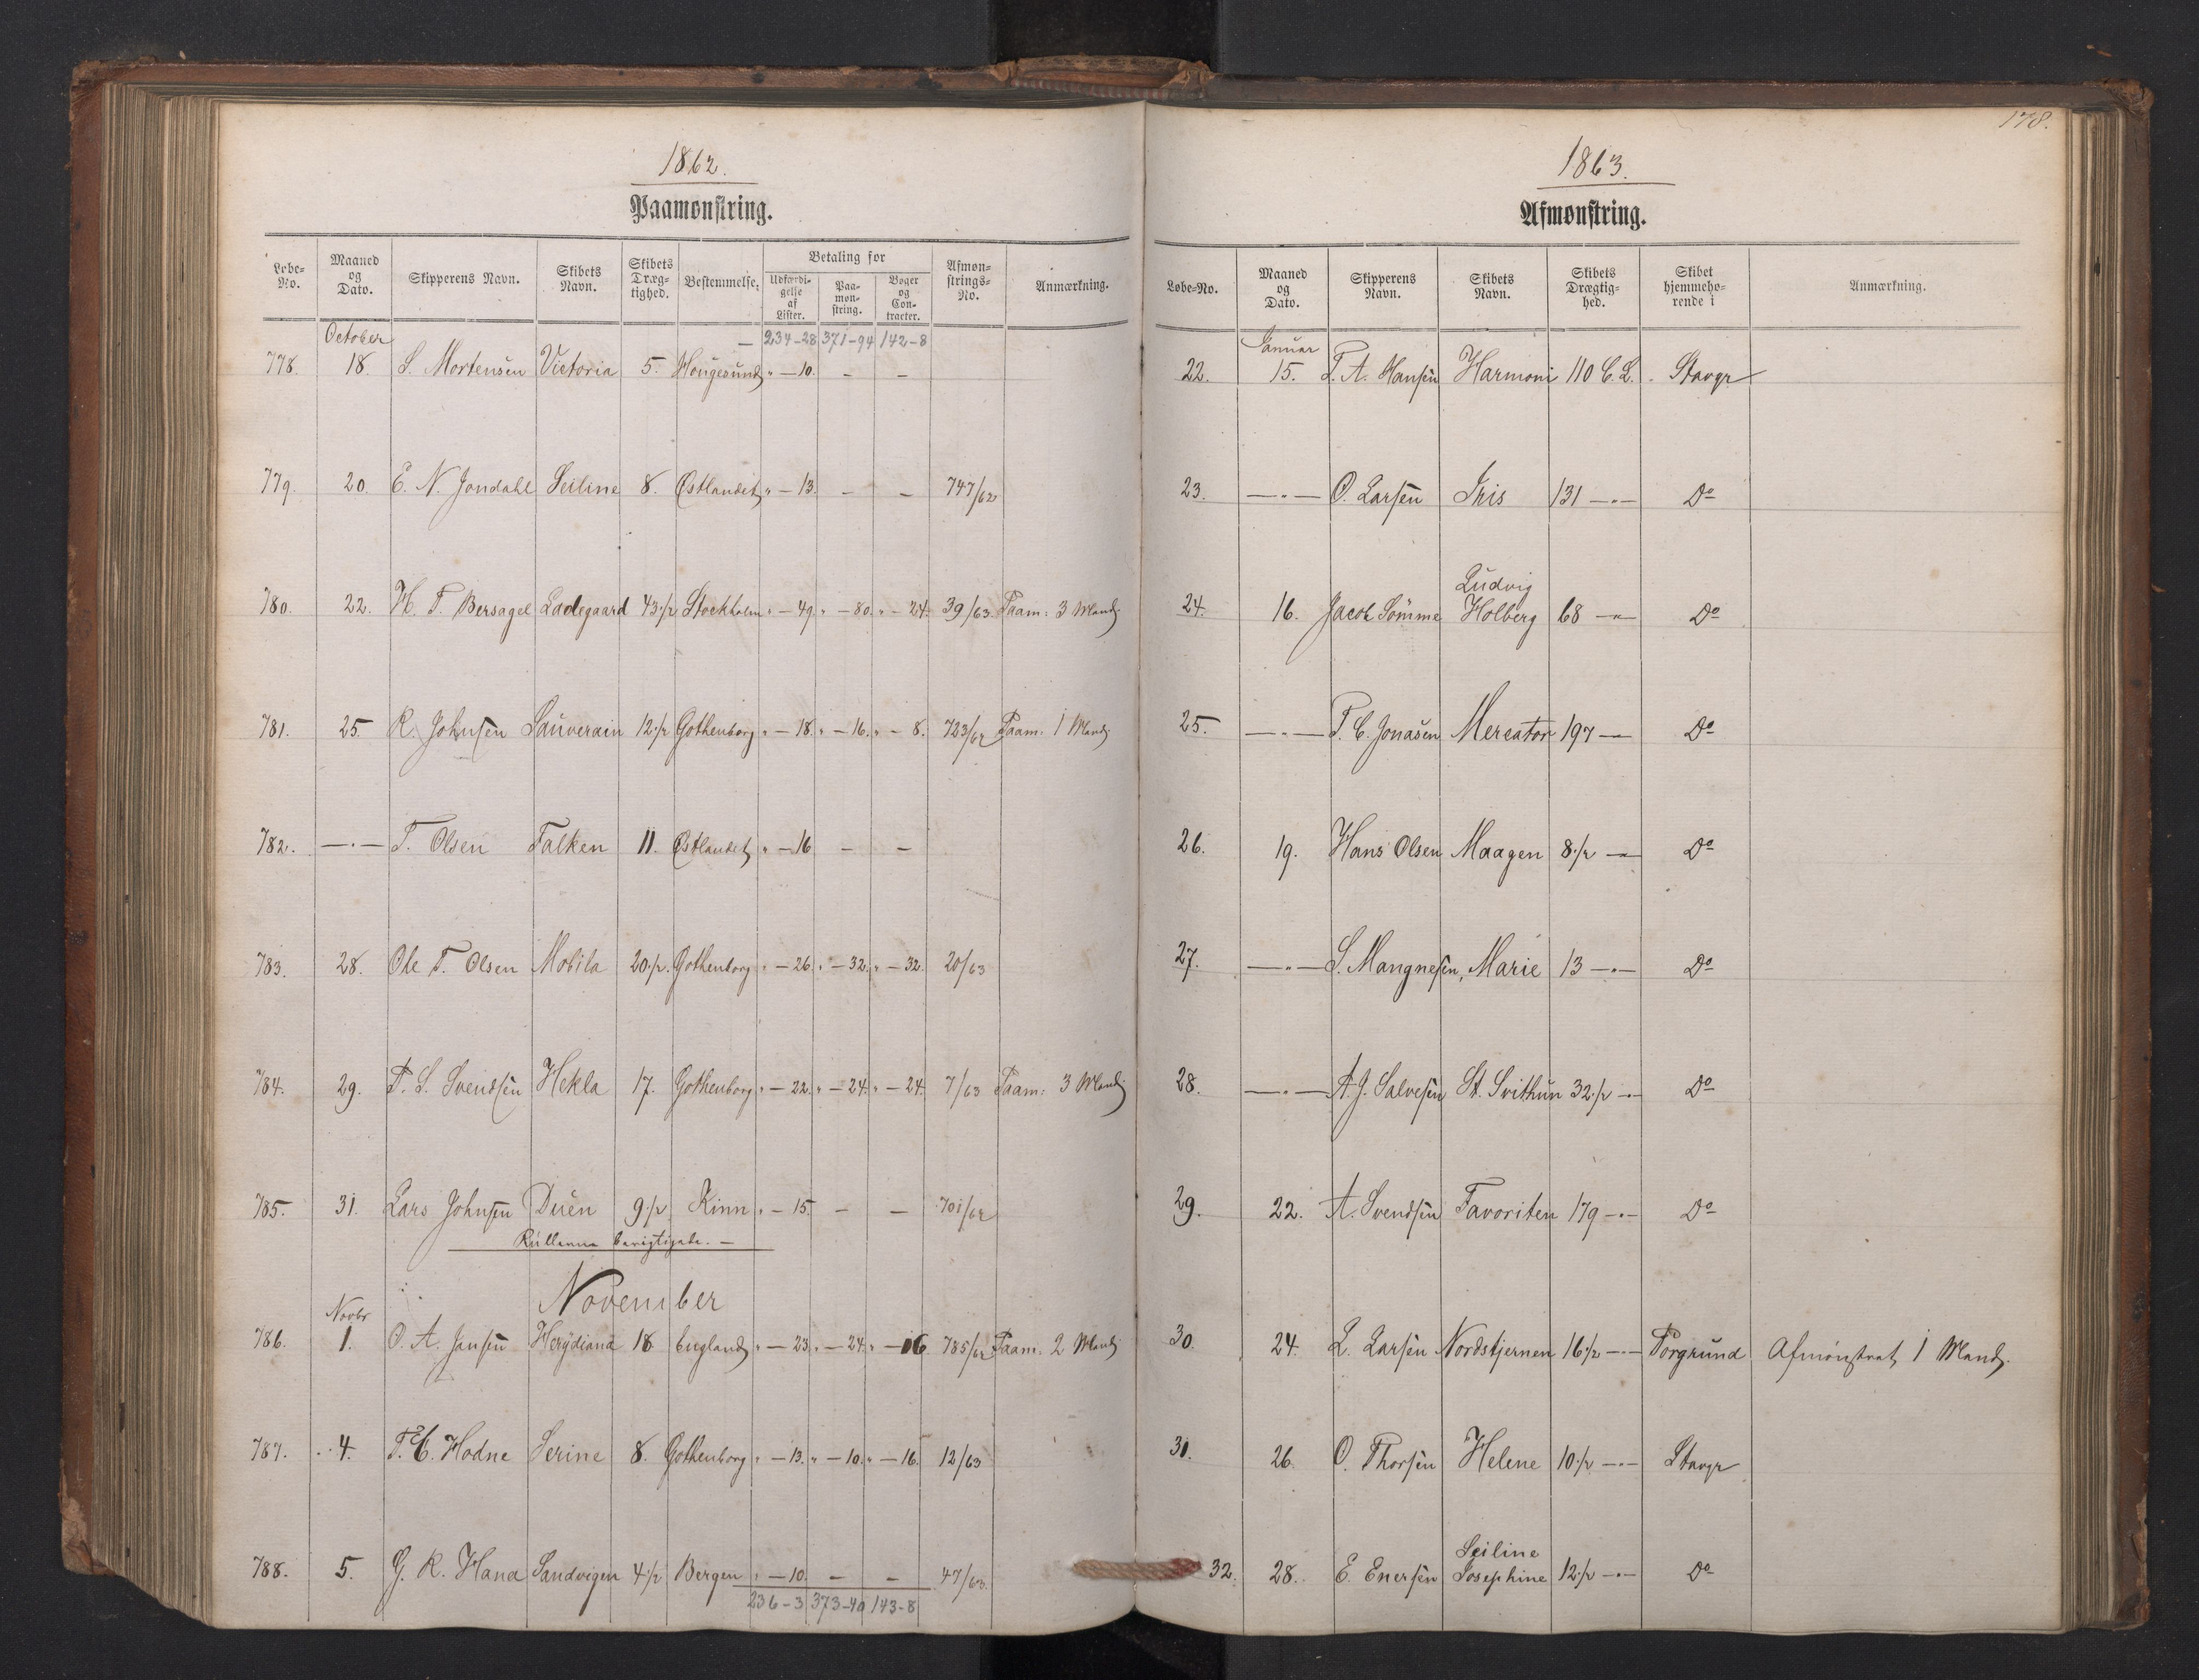 178.
1862.
Paamønstring.
Løbe-No. | Maaned og Dato. | Skipperens Navn. | Skibets Navn. | Skibets Drægtighed. | Bestemmelse. | Betaling for Udfærdigelse af Lister. | Paamønstring. | Bøger og Contracter. | Afmønstrings-No. | Anmærkning.
October — 234-28 371-94 142-8
778. 18. S. Mortensen Victoria 5. Hougesund " — 10. — —
779. 20. E. N. Jondahl Seiline 8. Østlandet " — 13. — — 747/62
780. 22. H. T. Bersagel Ladegaard 43 1/2 Stockholm " — 49. " — 80. " — 24. 39/63 Paam: 3 Mand
781. 25. R. Johnsen Sauverain 12 1/2 Gothenborg " — 18. " — 16. " — 8. 723/62 Paam: 1 Mand
782. —"— T. Olsen Falken 11. Østlandet " — 16 — —
783. 28. Ole T. Olsen Mobila 20 1/2. Gothenborg " — 26. " — 32. " — 32. 20/63
784. 29. T. S. Svendsen Hekla 17. Gothenborg " — 22. " — 24. " — 24. 7/63 Paam: 3 Mand
785. 31. Lars Johnsen Duen 9 1/2 Kinn " — 15. — — 701/62
Rullerne berigtigede. —
November
Novbr
786. 1. O. A. Jansen 18 England " — 23. " — 24. " — 16 785/62 Paam. 2 Mand
787. 4. Hodne Serine 8. Gothenborg " — 13. " — 10. " — 16. 12/63
788. 5. G. R. Hana Sandvigen 4 1/2 Bergen " — 10. — — 47/63.
236-3 373-40 143-8
1863.
Afmønstring.
Løbe-No. | Maaned og Dato. | Skipperens Navn. | Skibets Navn. | Skibets Drægtighed. | Skibet hjemmehørende i | Anmærkning.
Januar
22. 15. T. A. Hansen Harmoni 110 C. L. Stavgr
23. —"— O. Larsen Iris 131 —"— Do
Ludvig
24. 16. Jacob Sømme Holberg 68 —"— Do
25. —"— T. C. Jonasen Mercator 197 — Do
26. 19. Hans Olsen Maagen 8 1/2 — Do
27. —"— S. Mangnesen, Marie 13 —"— Do
28. —"— A. J. Salvesen St. Svithun 32 1/2 —"— Do
29. 22. A. Svendsen Favoriten 179 —"— Do
30. 24. L. Larsen Nordstjernen 16 1/2 —"— Porgrund Afmønstret 1 Mand.
31. 26. O. Thorsen Helene 10 1/2 —"— Stavgr
Seiline
32. 28. E. Enersen Josephine 12 1/2 —"— Do